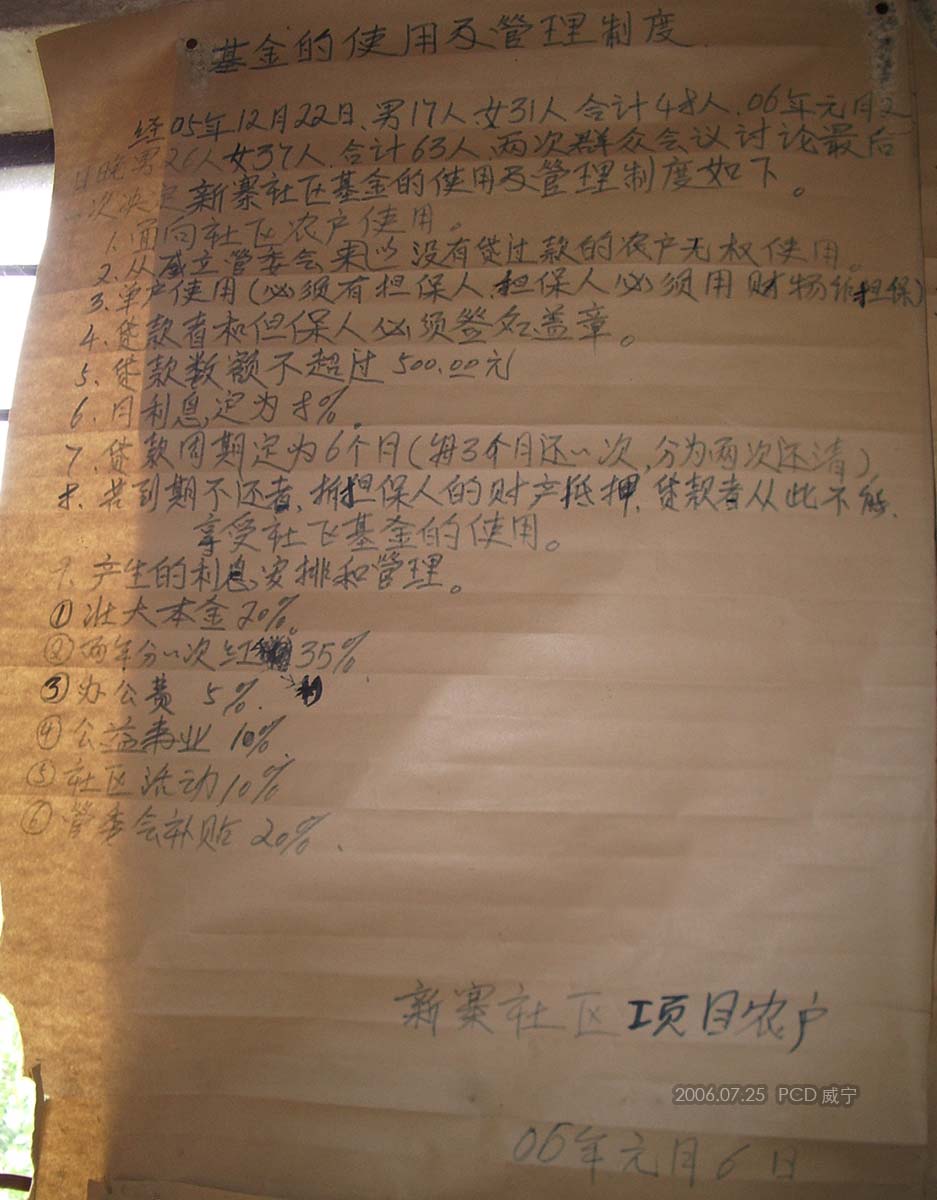 基金的使用及管理制度.
经05年12月22日、男17人女31人合计48人.06年元月2
日晚男26人女37人.合计63人.两次群众会议讨论最后
一次决定新寨社区基金的使用及管理制度如下。
1.面向社区农户使用。
2.从成立管委会来以没有贷过款的农户无权使用。
3.单户使用(必须有担保人.担保人必须用财物作担保)
4.贷款者和但保人必须签名盖章。
5、贷款数额不超过500.00元
6、月利息定为8%.
7、贷款周期定为6个月(每3个月还一次,分为两次还清)
8.若到期不还者,担保人的财产抵押.贷款者从此不能.
享受社区基金的使用。
9.产生的利息安排和管理。
①壮大本金20%.
②两年分一次红 35%.
③办公费 5%.
④公益事业 10%.
⑤社区活动10%.
⑥管委会补贴 20%.
新寨社区项目农户
06年元月6日
2006.07.25 PCD 威宁